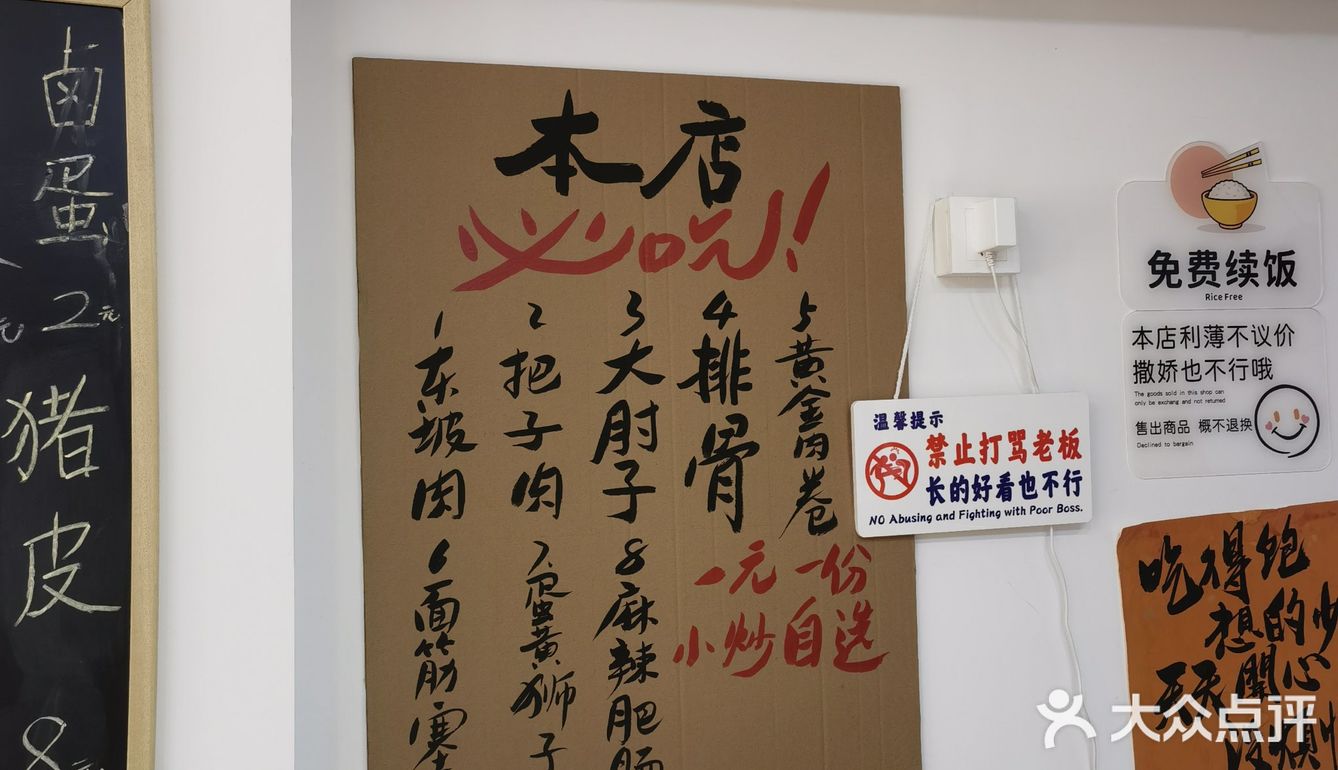 卤蛋
2元
猪皮
8元
本店
必吃!
1东坡肉
2把子肉
3大肘子
4排骨
5黄金肉卷
6面筋塞
7蛋黄狮子
8麻辣肥肠
一元一份
小炒自选
温馨提示
禁止打骂老板
长的好看也不行
NO Abusing and Fighting with Poor Boss.
免费续饭
Rice Free
本店利薄不议价
撒娇也不行哦
The goods sold in this shop can
only be exchang and not returned
售出商品 概不退换
Declined to bargain
吃得饱
想的少
天天開心
沒煩
大众点评